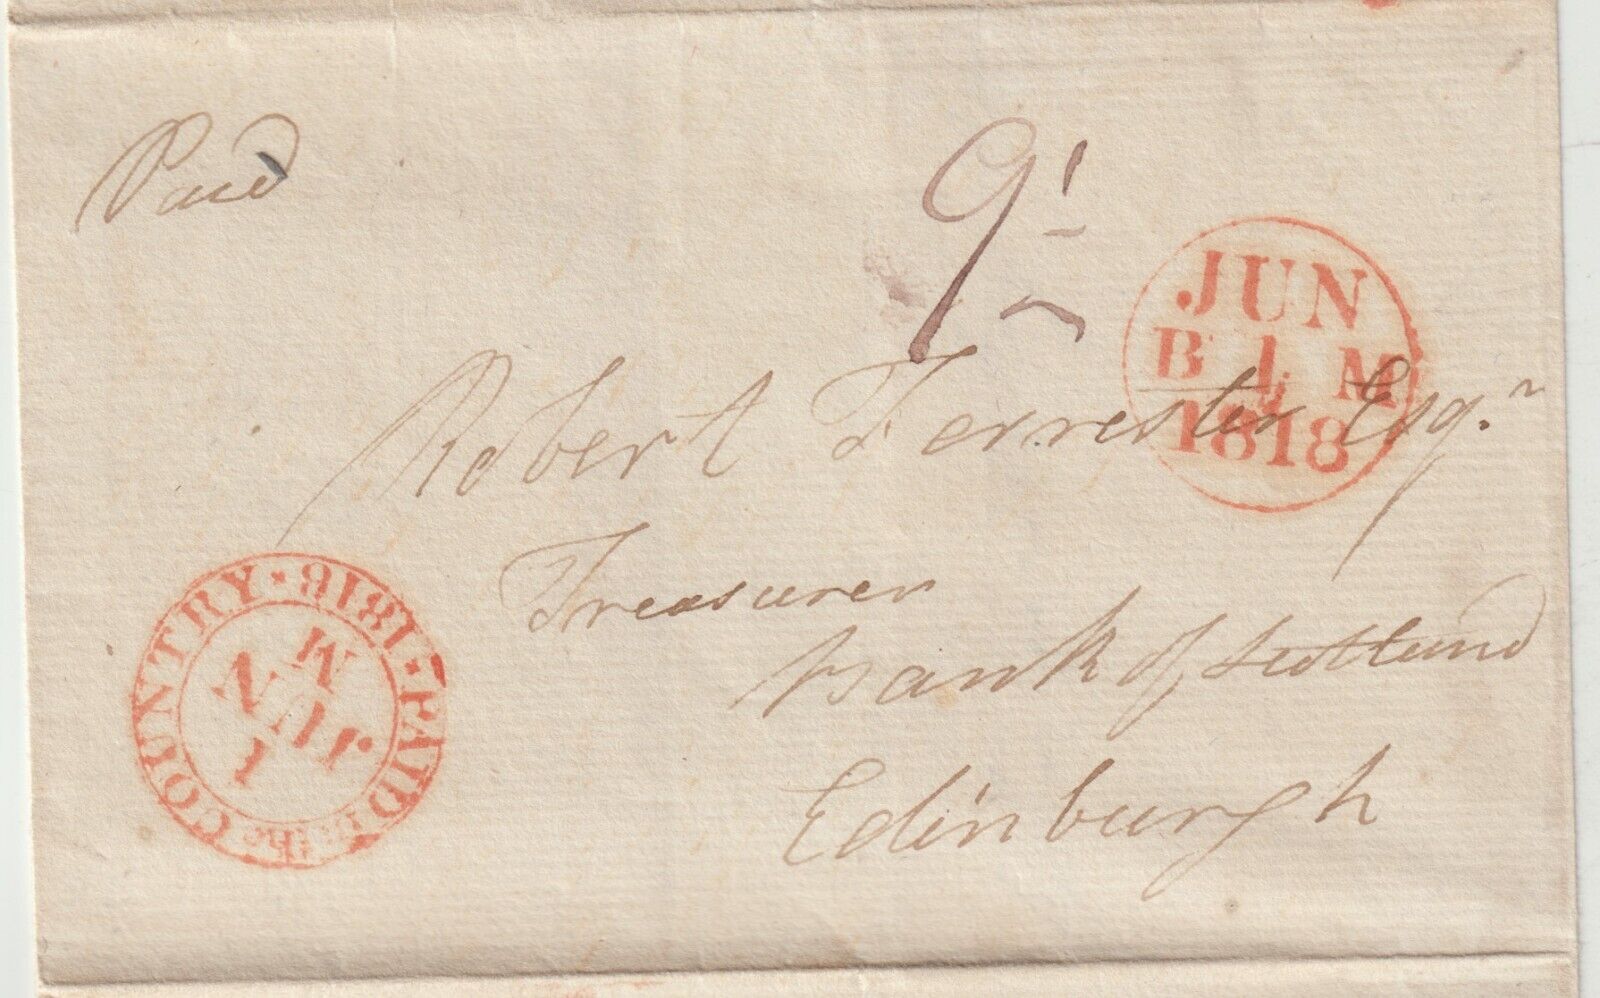 Paid
9
JUN
B 1 M
1818
Robert Forrester Esqr
Treasurer
Bank of Scotland
Edinburgh
PAID in the COUNTRY · 1818 ·
JU
1